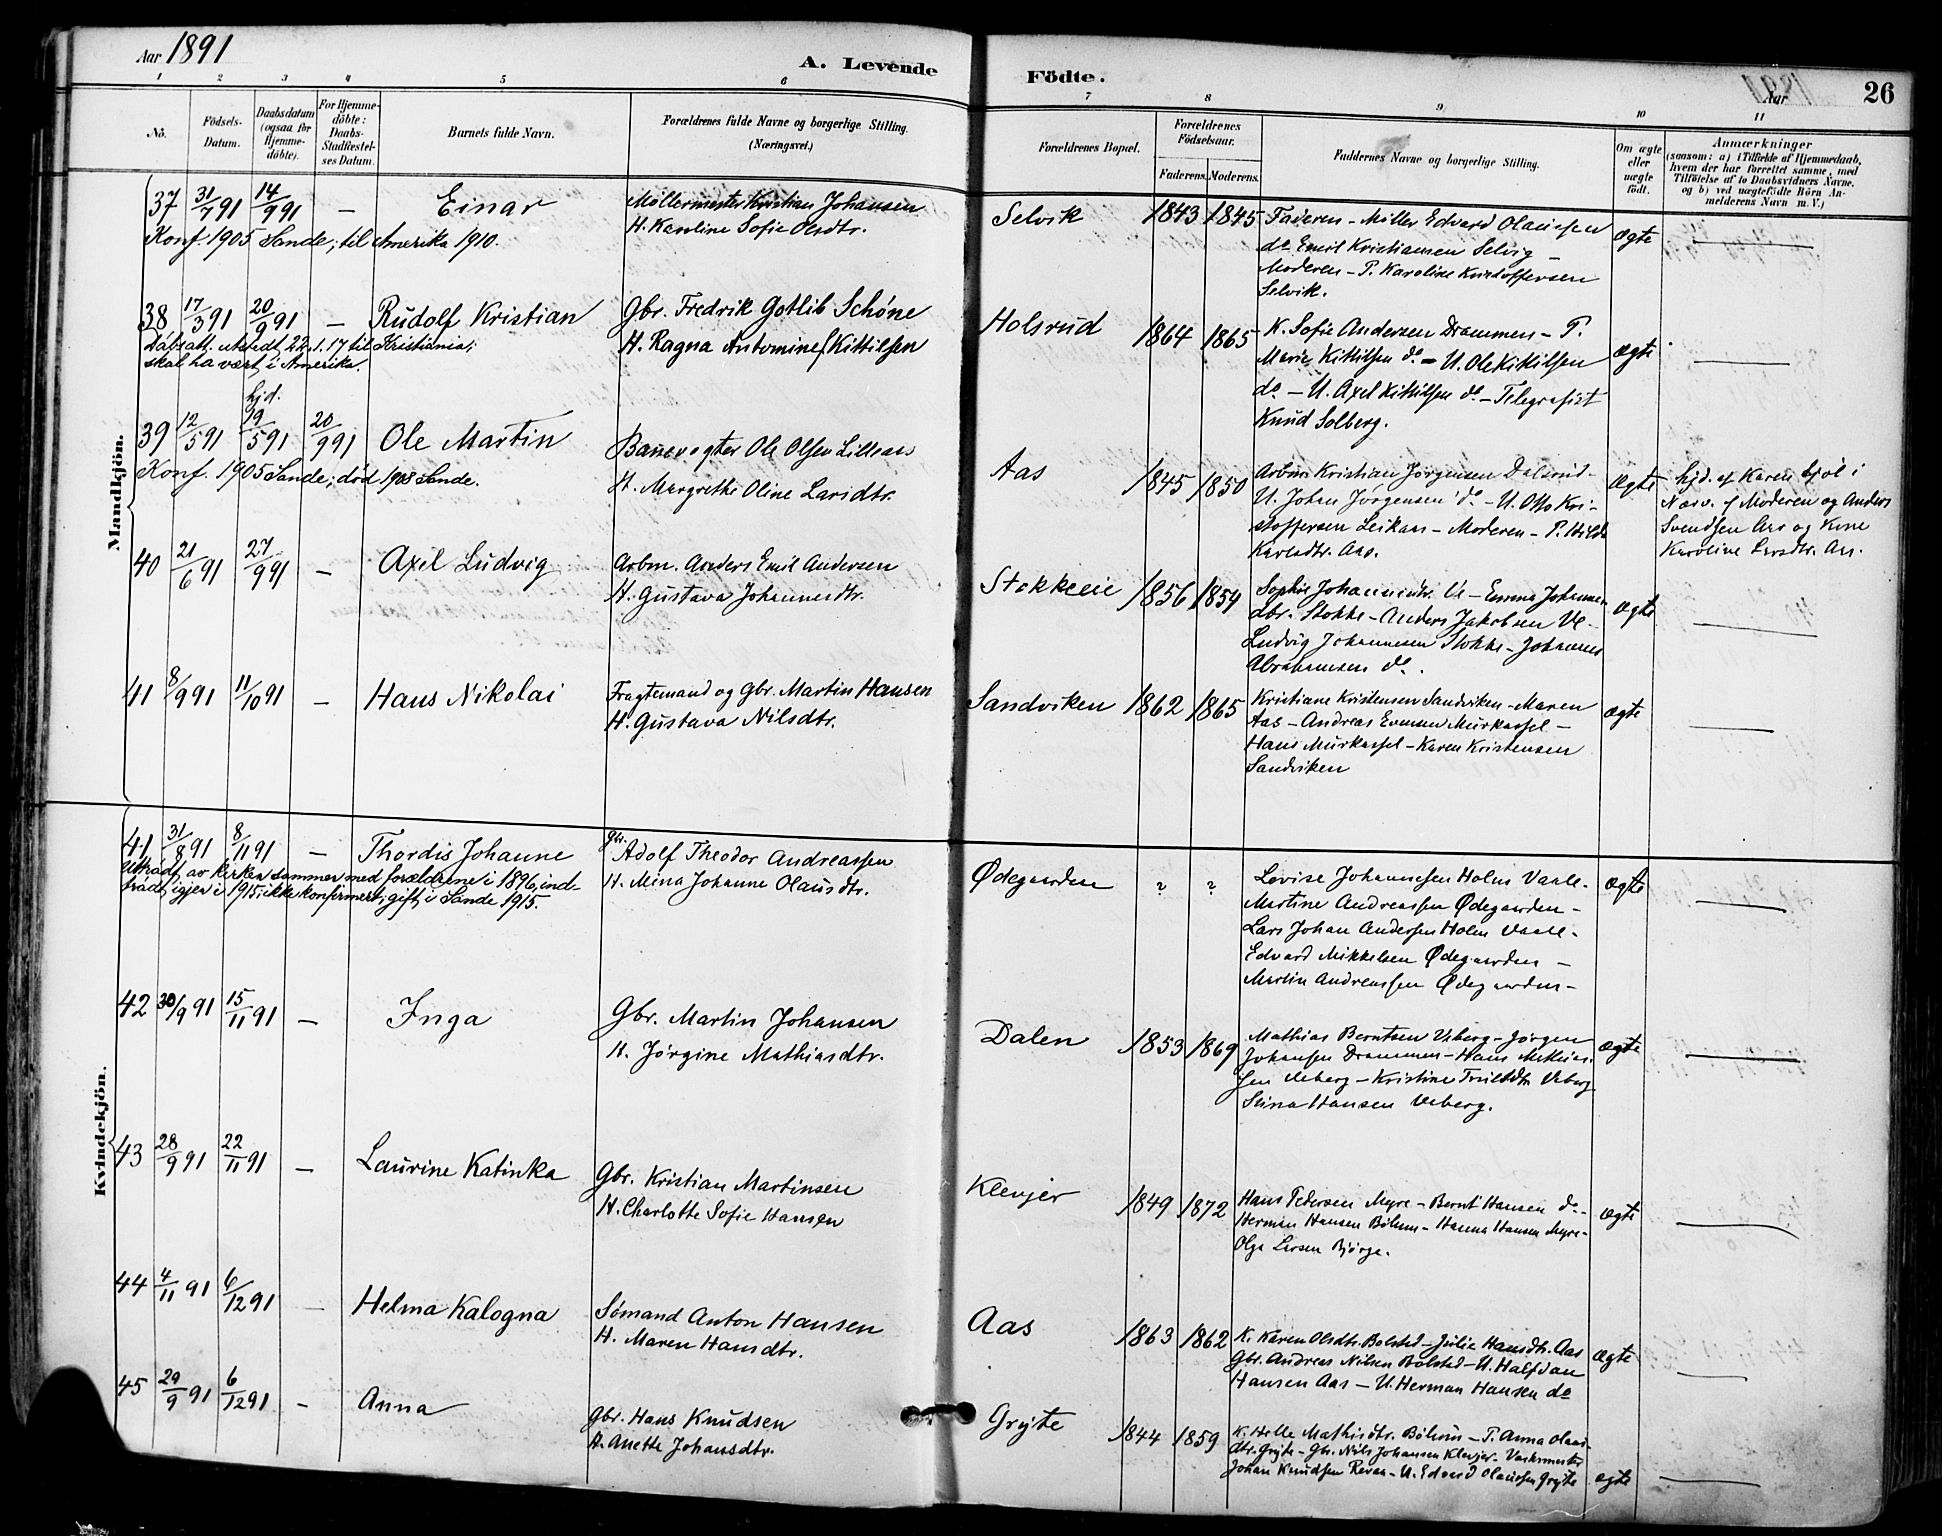 Aar 1891
A. Levende Födte.
Aar 26
1 2 3 4 5 6 7 8 9 10 11
No.
Födsels-Datum.
Daabsdatum (ogsaa for Hjemme-döbte).
For Hjemme-döbte: Daabs-Stadfæstel-ses Datum.
Barnets fulde Navn.
Forældrenes fulde Navne og borgerlige Stilling. (Næringsvei.)
Forældrenes Bopæl.
Forældrenes Födselsaar.
Faderens. Moderens.
Faddernes Navne og borgerlige Stilling.
Om ægte eller uægte födt.
Anmærkninger
(saasom: a) i Tilfælde af Hjemmedaab, hvem der har forrettet samme, med Tilföielse af to Daabsvidners Navne, og b) ved uægtefödte Börn An-melderens Navn m. V.)
Mandkjön.
37 31/7 91 14/9 91 — Einar
Möllermester Kristian Johansen
H. Karoline Sofie Olsdtr.
Selvik 1843 1845
Faderen - Möller Edvard Olaussen
do Emil Kristiansen Selvig -
Moderen - P. Karoline Kristoffersen
Selvik.
ægte
Konf. 1905 Sande; til Amerika 1910.
38 17/3 91 20/9 91 — Rudolf Kristian
Gbr. Fredrik Gotlib Schöne
H. Ragna Antomine Kittilsen
Holsrud 1864 1865
K. Sofie Andersen Drammen - P.
Marie Kittilsen do - U. Ole Kittilsen
do - U. Axel Kittilsen do - Telegrafist
Knud Solberg.
ægte
Dåbsatt. utstedt 22.1.17 til Kristiania;
skal ha vært i Amerika.
39 12/5 91 hjd. 19/5 91 20/9 91 Ole Martin
Banevogter Ole Olsen Lilleaas
H. Margrethe Oline Larsdtr.
Aas 1845 1850
Arbm. Kristian Jørgensen Dalsrud -
U. Johan Jørgensen do - U. Otto Kri-
stoffersen Leikaas - Moderen - P. Hilda
Karlsdtr. Aas.
ægte
hjd. af Karen Gjøl i
Nærv. af Moderen og Anders
Svendsen Aas og Kine
Karoline Larsdtr. Aas.
Konf. 1905 Sande; død 1908 Sande.
40 21/6 91 27/9 91 — Axel Ludvig
Arbm. Anders Emil Andersen
H. Gustava Johannesdtr.
Stokkeeie 1856 1859
Sophie Johannesdtr. Ve - Emma Johannes
dtr. Stokke - Anders Jakobsen Ve -
Ludvig Johannesen Stokke - Johannes
Abrahamsen do.
ægte
41 8/9 91 11/10 91 — Hans Nikolai
Fragtemand og Gbr. Martin Hansen
H. Gustava Nilsdtr.
Sandviken 1862 1865
Kristiane Kristensen Sandviken - Maren
Aas - Andreas Evensen Murkassel -
Hans Murkassel - Karen Kristensen
Sandviken
ægte
Kvindekjön.
41 31/8 91 8/11 91 — Thordis Johanne
Gbr. Adolf Theodor Andreassen
H. Mina Johanne Olausdtr.
Ødegaarden ? ?
Lovise Johannesen Holm Vaale -
Martine Andreassen Ødegaarden -
Lars Johan Andersen Holm Vaale -
Edvard Mikkelsen Ødegaarden -
Martin Andreassen Ødegaarden -
ægte
Uttrådt av kirken sammen med forældrene i 1896, ind-
trådt igjen i 1915; ikke konfirmert; gift i Sande 1915.
42 30/9 91 15/11 91 — Inga
Gbr. Martin Johansen
H. Jørgine Mathiasdtr.
Dalen 1853 1869
Mathias Berntsen Veberg - Jørgen
Johansen Drammen - Hans Mathias-
sen Veberg - Kristine Trulsdtr. Veberg
Stina Hansen Veberg.
ægte
43 28/9 91 22/11 91 — Laurine Katinka
Gbr. Kristian Martinsen
H. Charlotte Sofie Hansen
Klevjer 1849 1872
Hans Pedersen Myre - Bernt Hansen do -
Herman Hansen Bölum - Hanna Hansen Myre -
Olga Larsen Bjørge.
ægte
44 4/11 91 6/12 91 — Helma Kalogna
Sømand Anton Hansen
H. Maren Hansdtr.
Aas 1863 1862
K. Karen Olsdtr. Bolsted - Julie Hansdtr. Aas
Gbr. Andreas Nilsen Bolsted - U. Halfdan
Hansen Aas - U. Herman Hansen do
ægte
45 29/9 91 6/12 91 - Anna
Gbr. Hans Knudsen
H. Anette Johansdtr.
Gryte 1844 1859
K. Helle Mathisdtr. Bölum - P. Anna Olaus-
dtr. Gryte - Gbr. Nils Johansen Klevjer - Værksmester
Johan Knudsen Revaa - U. Edvard Olaussen Gryte
ægte